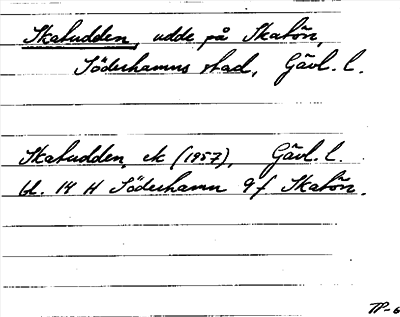 Skatudden, udde på Skatön,
Söderhamns stad, Gävl. l.
Skatudden, ek (1957), Gävl. l.
bl. 14 H Söderhamn 9 f Skatön.